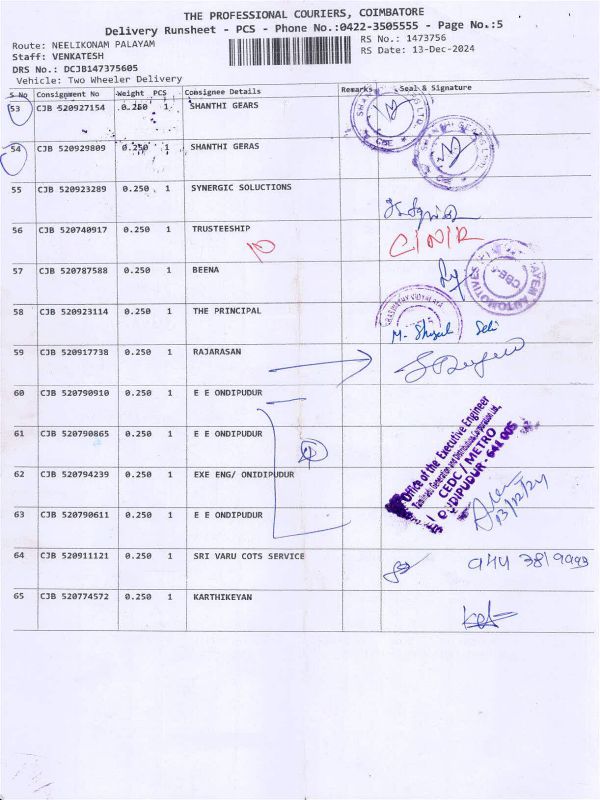 THE PROFESSIONAL COURIERS, COIMBATORE
Delivery Runsheet - PCS - Phone No.:0422-3505555 - Page No.:5
Route: NEELIKONAM PALAYAM
RS No.: 1473756
Staff: VENKATESH
RS Date: 13-Dec-2024
DRS No.: DCJB147375605
Vehicle: Two Wheeler Delivery
S No Consignment No Weight PCS Consignee Details Remarks Seal & Signature
53 CJB 520927154 0.250 1 SHANTHI GEARS
54 CJB 520929809 0.250 1 SHANTHI GERAS
55 CJB 520923289 0.250 1 SYNERGIC SOLUCTIONS
56 CJB 520740917 0.250 1 TRUSTEESHIP C/N/R
57 CJB 520787588 0.250 1 BEENA
58 CJB 520923114 0.250 1 THE PRINCIPAL
59 CJB 520917738 0.250 1 RAJARASAN
60 CJB 520790910 0.250 1 E E ONDIPUDUR
61 CJB 520790865 0.250 1 E E ONDIPUDUR
Office of the Executive Engineer
CEDC / METRO
ONDIPUDUR - 641 005
62 CJB 520794239 0.250 1 EXE ENG/ ONIDIPUDUR
63 CJB 520790611 0.250 1 E E ONDIPUDUR 13/12/24
64 CJB 520911121 0.250 1 SRI VARU COTS SERVICE 944 3819993
65 CJB 520774572 0.250 1 KARTHIKEYAN